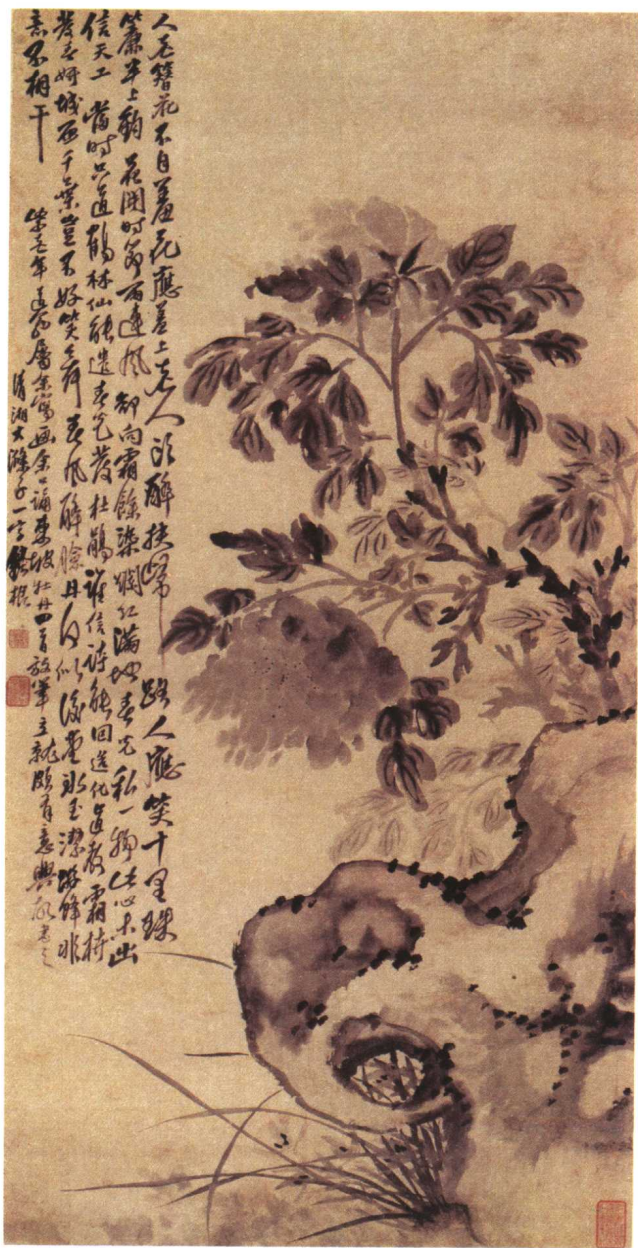 人老簪花不自羞花應羞上老人頭醉扶歸路人應笑十里珠
簾半上鉤 花開時節雨連風卻向霜餘染爛紅滿地春光私一物此心未出
信天工 當時只道鶴林仙能遣春光發杜鵑誰信詩能回造化直教霜枿
發春妍城西千葉豈不好笑舞春風醉臉丹何似後堂冰玉潔游蜂非
意不相干
年道翁屬余寫畫余口誦東坡牡丹四首放筆立就頗有意興故書之
清湘大滌子一字鈍根